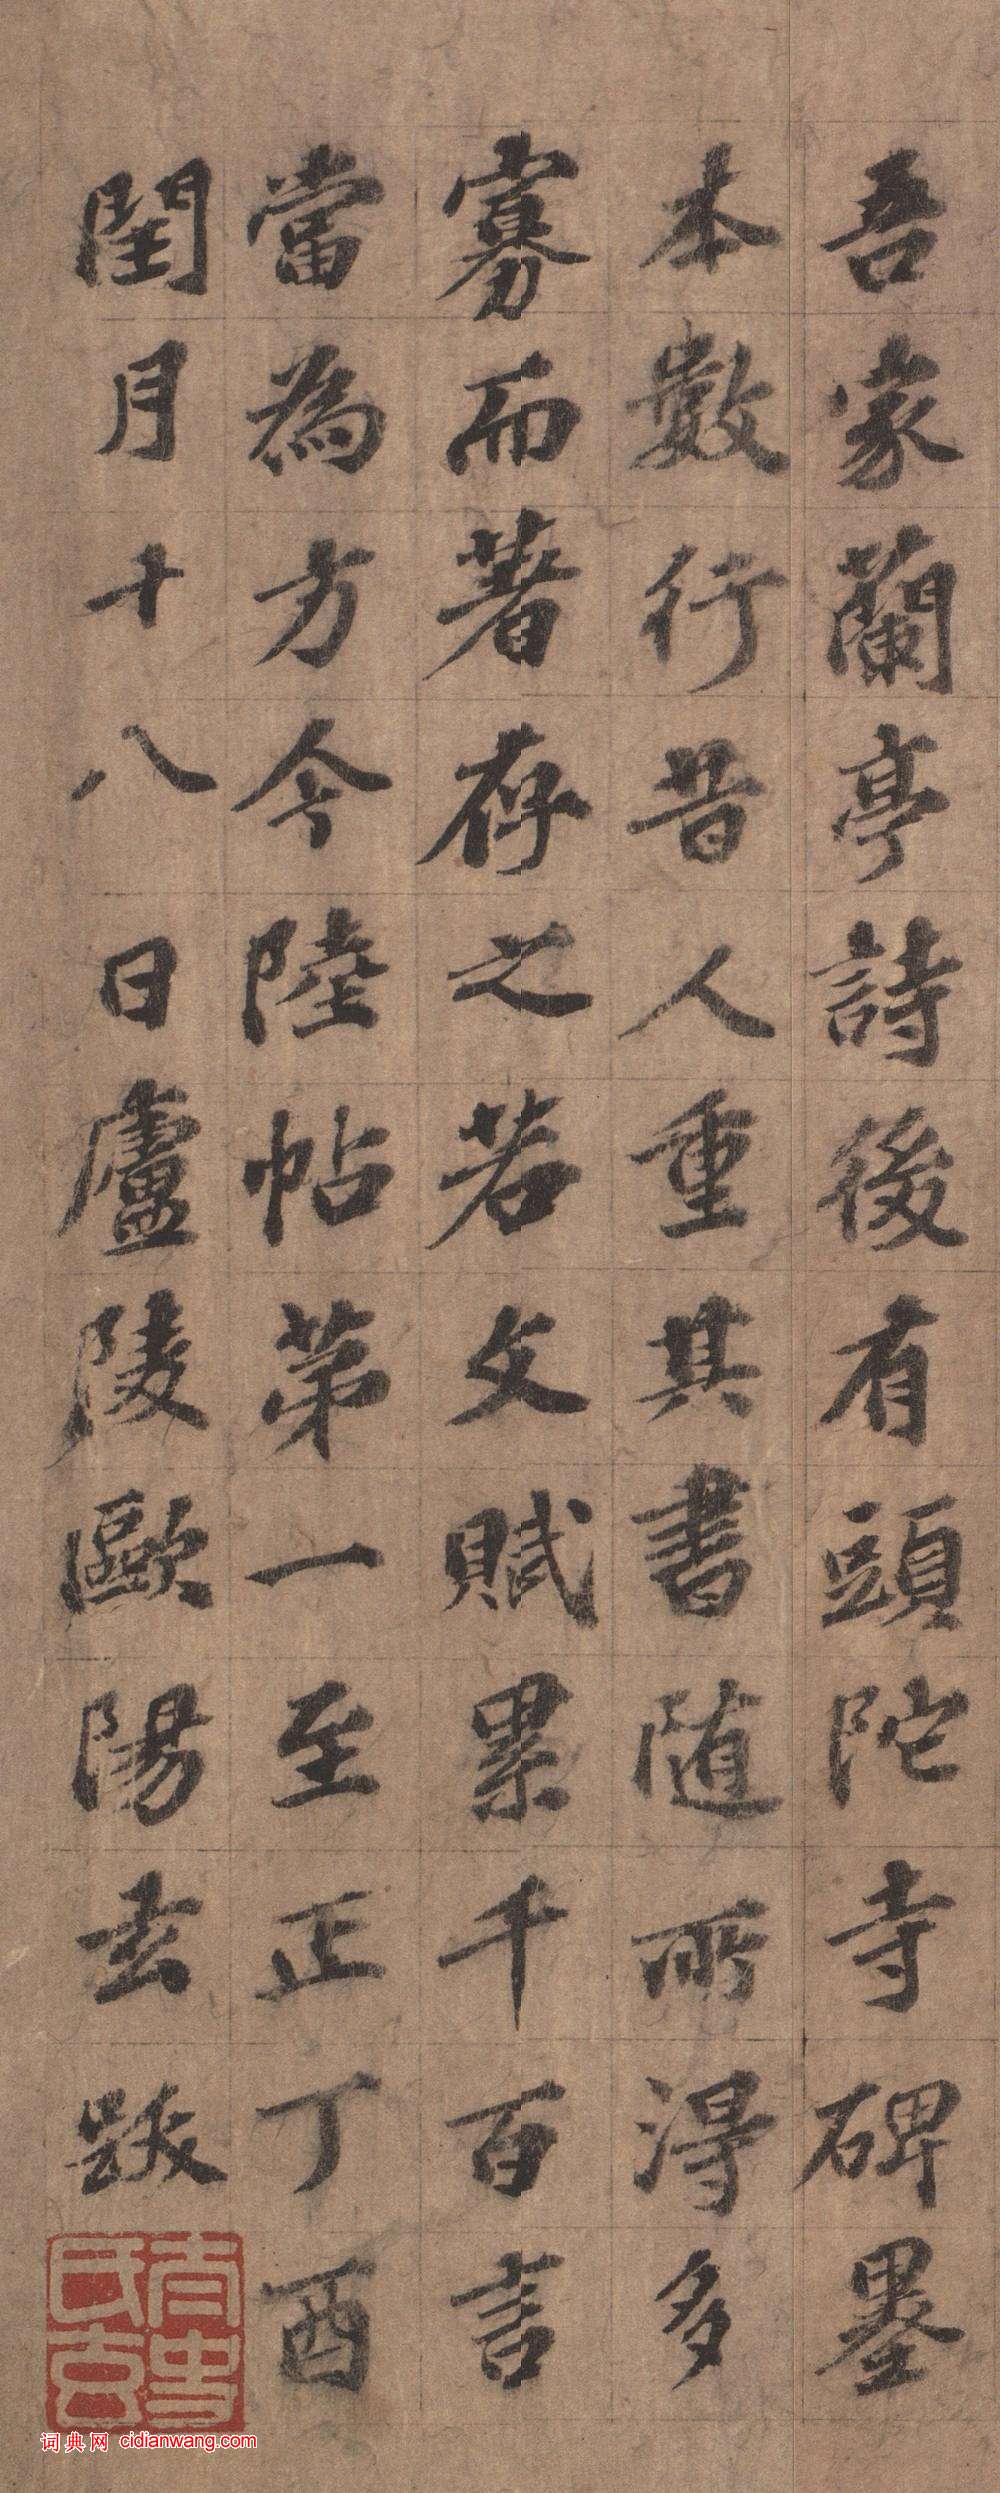 吾家蘭亭詩後有頭陀寺碑墨
本數行昔人重其書随所得多
寡而著存之若文賦累千百言
當為方今陸帖第一至正丁酉
閏月十八日廬陵歐陽玄跋
词典网 cidianwang.com